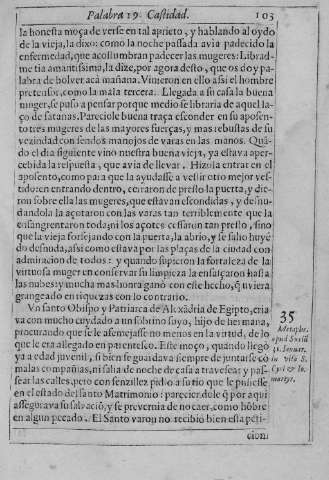 Palabra 19. Castidad. 103
la honesta moça de verse en tal aprieto, y hablando al oydo
de la vieja, la dixo: como la noche passada avia padecido la
enfermedad, que acostumbran padecer las mugeres: Librad-
me tia amantissima, la dize, por agora desto, que os doy pa-
labra de bolver acá mañana. Vinieron en ello assi el hombre
pretensor, como la mala tercera. Llegada a su casa la buena
muger, se puso a pensar por que medio se libraria de aquel la-
ço de satanas. Pareciole buena traça esconder en su aposen-
to tres mugeres de las mayores fuerças, y mas rebustas de su
vezindad con sendos manojos de varas en las manos. Quã-
do el dia siguiente vino nuestra buena vieja, ya estava aper-
cebida la respuesta, que avia de llevar. Hizola entrar en el
aposento, como para que la ayudasse a vestir otro mejor ves-
tido: en entrando dentro, cerraron de presto la puerta, y die-
ron sobre ella las mugeres, que estavan escondidas, y desnu-
dandola la açotaron con las varas tan terriblemente que la
ensangrentaron toda; ni los açotes cessaron tan presto, sino
que la vieja forsejando con la puerta, la abrio, y se salio huyẽ-
do desnuda, assi como estava por las plaças de la ciudad con
admiracion de todos: y quando supieron la fortaleza de la
virtuosa muger en conservar su limpieza la ensalçaron hasta
las nubes: y mucha mas honra ganò con este hecho, q̃ uviera
grangeado en riquezas con lo contrario.
Vn santo Obispo y Patriarca de Alexãdria de Egipto, cria
va con mucho cuydado a un sobrino sayo, hijo de hermana,
procurando que se le asemejasse no menos en la virtud, de lo
que le era allegado en parentesco. Este moço, quando llegò
ya a edad juvenil, si bien se guardava siempre de juntarse cõ
malas compañias, ni salia de noche de casa a travesear y pas-
sear las calles, pero con senzillez pidio a su tio que le pusiesse
en el estado del santo Matrimonio: pareciendole q̃ por aqui
assegurava su salvaciõ, y se prevernia de no caer, como hõbre
en algun pecado. El Santo varon no recibiò bien esta peti-
cion:
35
Metaphr.
apud Suriũ
31. Januar.
in vita S.
Cyri &
martyr.